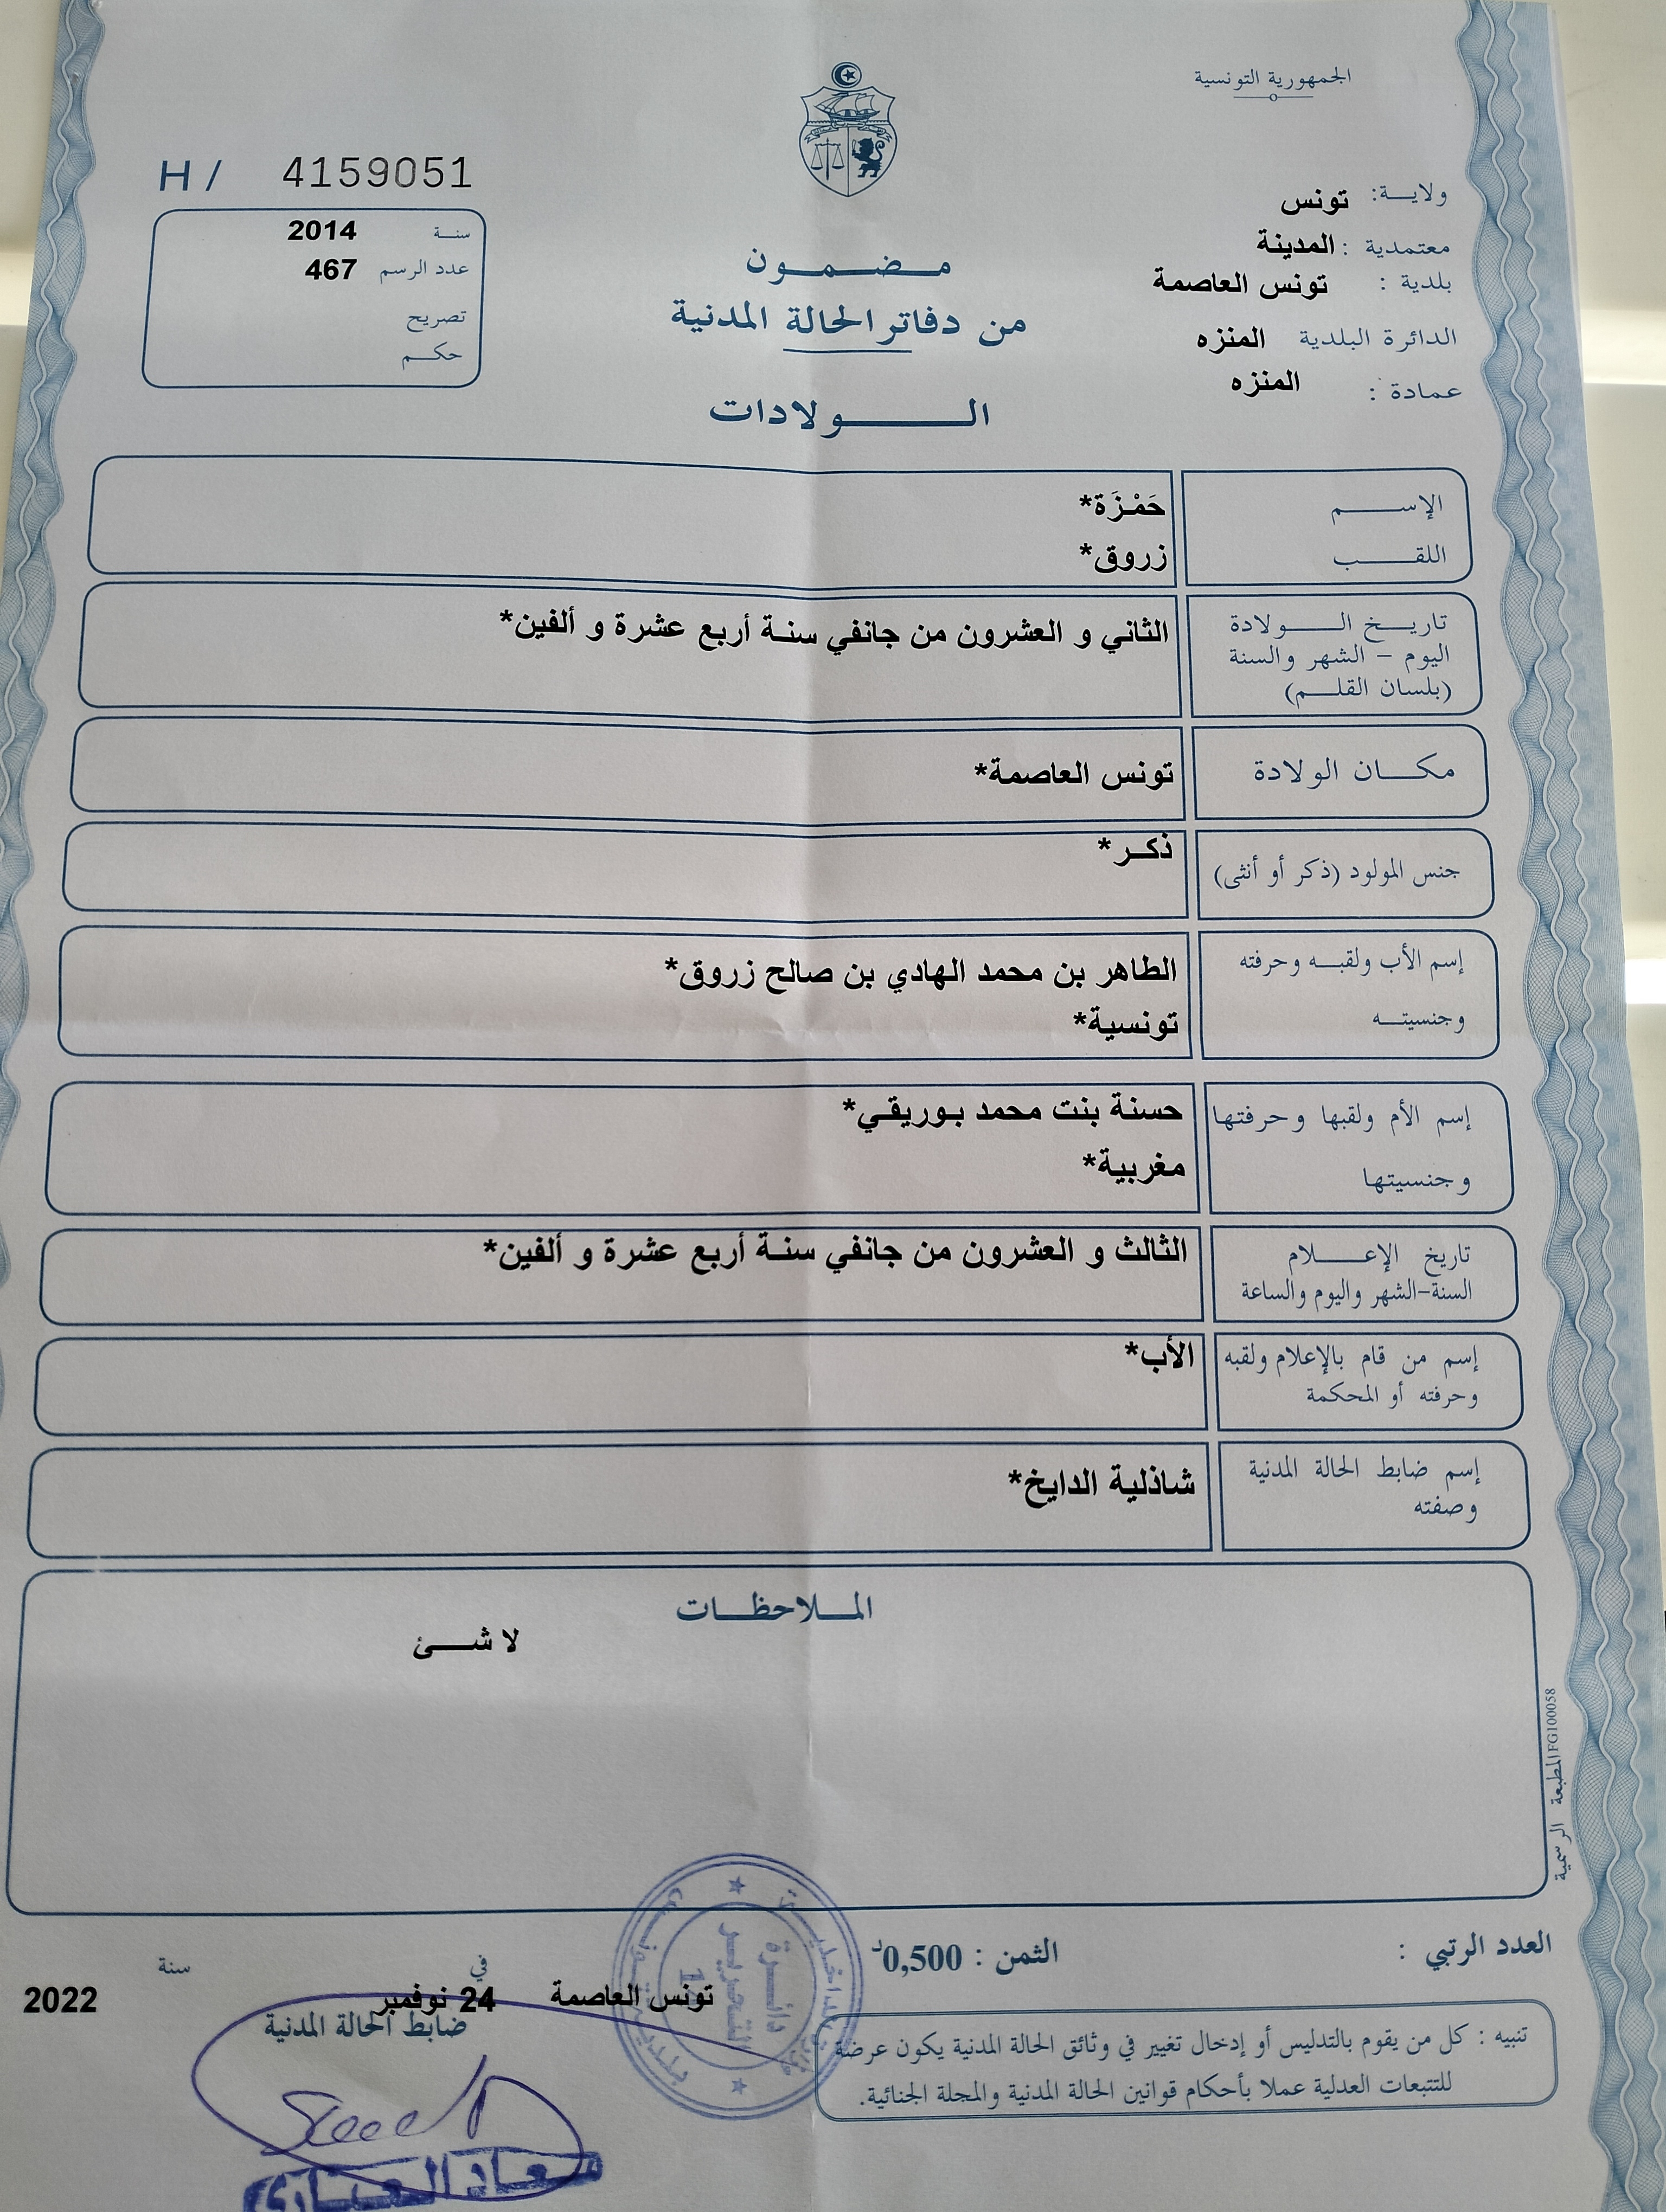 الجمهورية التونسية
ولايـــة: تونس
معتمدية : المدينة
بلدية : تونس العاصمة
الدائرة البلدية المنزه
عمادة : المنزه
H / 4159051
سنـة 2014
عدد الرسم 467
تصريح
حكـــم
مـضـمـــون
من دفاتر الحالة المدنية
الـــــــولادات
الإســــــم حَمْـزَة*
اللقـــــب زروق*
تاريـــخ الــــــولادة الثاني و العشرون من جانفي سنـة أربع عشرة و ألفين*
اليوم – الشهر والسنة
(بلسان القلـــم)
مكــــان الولادة تونس العاصمة*
جنس المولود (ذكر أو أنثى) ذكــر*
إسم الأب ولقبـــه وحرفته الطاهر بن محمد الهادي بن صالح زروق*
وجنسيتـــه تونسية*
إسم الأم ولقبها وحرفتها حسنة بنت محمد بـوريقـي*
وجنسيتها مغربية*
تاريخ الإعـــــلام الثالث و العشرون من جانفي سنـة أربع عشرة و ألفين*
السنة–الشهر واليوم والساعة
إسم من قام بالإعلام ولقبه الأب*
وحرفته أو المحكمة
إسم ضابط الحالة المدنية شاذلية الدايخ*
وصفته
المـــلاحظـــات
لا شـــــئ
المطبعة الرسمية FG100058
العدد الرتبي :
الثمن : 0,500د
تونس العاصمة في 24 نوفمبر سنة 2022
ضابط الحالة المدنية
تنبيه : كل من يقوم بالتدليس أو إدخال تغيير في وثائق الحالة المدنية يكون عرضة
للتتبعات العدلية عملا بأحكام قوانين الحالة المدنية والمجلة الجنائية.
دائـــرة
التحريـر
1
سعاد العياري